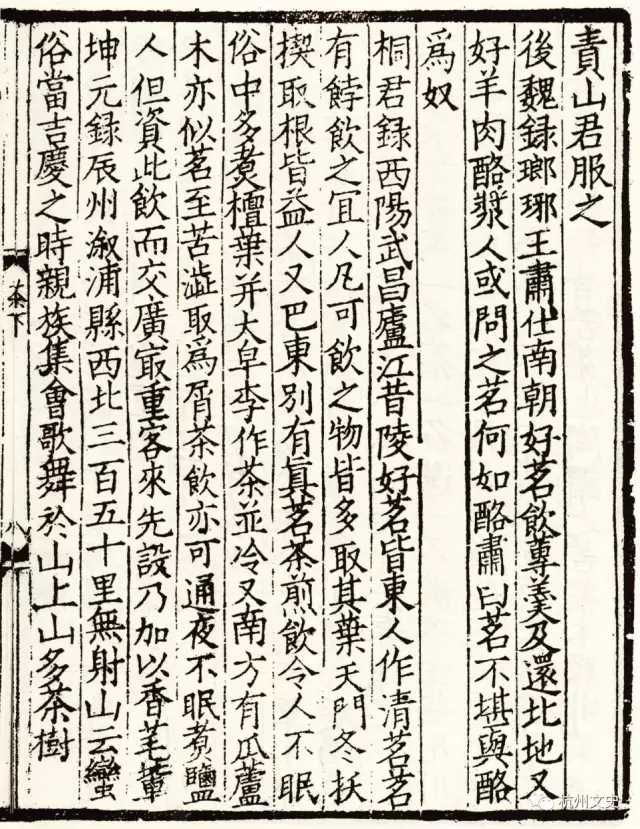 責山君服之
後魏録瑯琊王肅仕南朝好茗飲蓴羹及還北地又
好羊肉酪漿人或問之茗何如酪肅曰茗不堪與酪
爲奴
桐君録西陽武昌廬江昔陵好茗皆東人作清茗茗
有餑飲之宜人凡可飲之物皆多取其葉天門冬抜
揳取根皆益人又巴東别有真茗茶煎飲令人不眠
俗中多煑檀葉并大皁李作茶並冷又南方有瓜蘆
木亦似茗至苦澁取爲屑茶飲亦可通夜不眠煑鹽
人但資此飲而交廣冣重客來先設乃加以香芼軰
坤元録辰州溆浦縣西北三百五十里無射山云蠻
俗當吉慶之時親族集會歌舞於山上山多茶樹
茶下
八
杭州文史